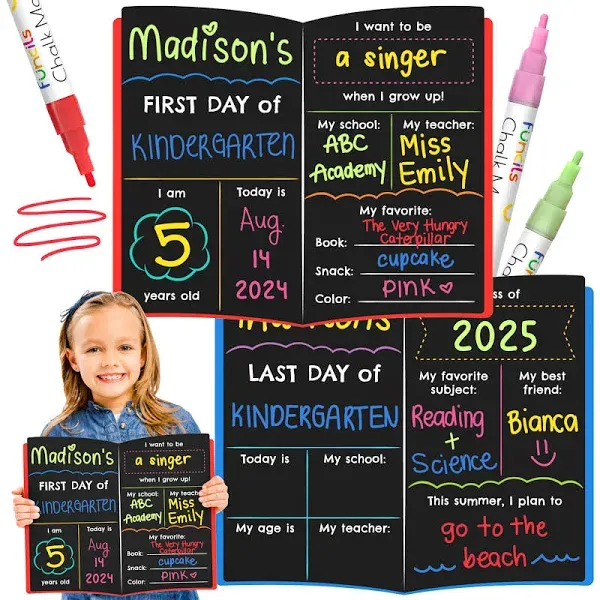 Funcils
Chalk Ma
Madison's
FIRST DAY of
KINDERGARTEN
I am
5
years old
Today is
Aug.
14
2024
I want to be
a singer
when I grow up!
My school:
ABC
Academy
My teacher:
Miss
Emily
My favorite:
Book: The Very Hungry
Caterpillar
Snack: cupcake
Color: PINK
Funcils
Chalk M
LAST DAY of
KINDERGARTEN
Today is
My school:
My age is
My teacher:
ss of
2025
My favorite
subject:
Reading
+
Science
My best
friend:
Bianca
This summer, I plan to
go to the
beach
Madison's
FIRST DAY of
KINDERGARTEN
I am
5
years old
Today is
Aug
14
2024
I want to be
a singer
when I grow up!
My school:
ABC
Academy
My teacher:
Miss
Emily
My favorite:
Book: The Very Hungry
Caterpillar
Snack: cupcake
Color: PINK